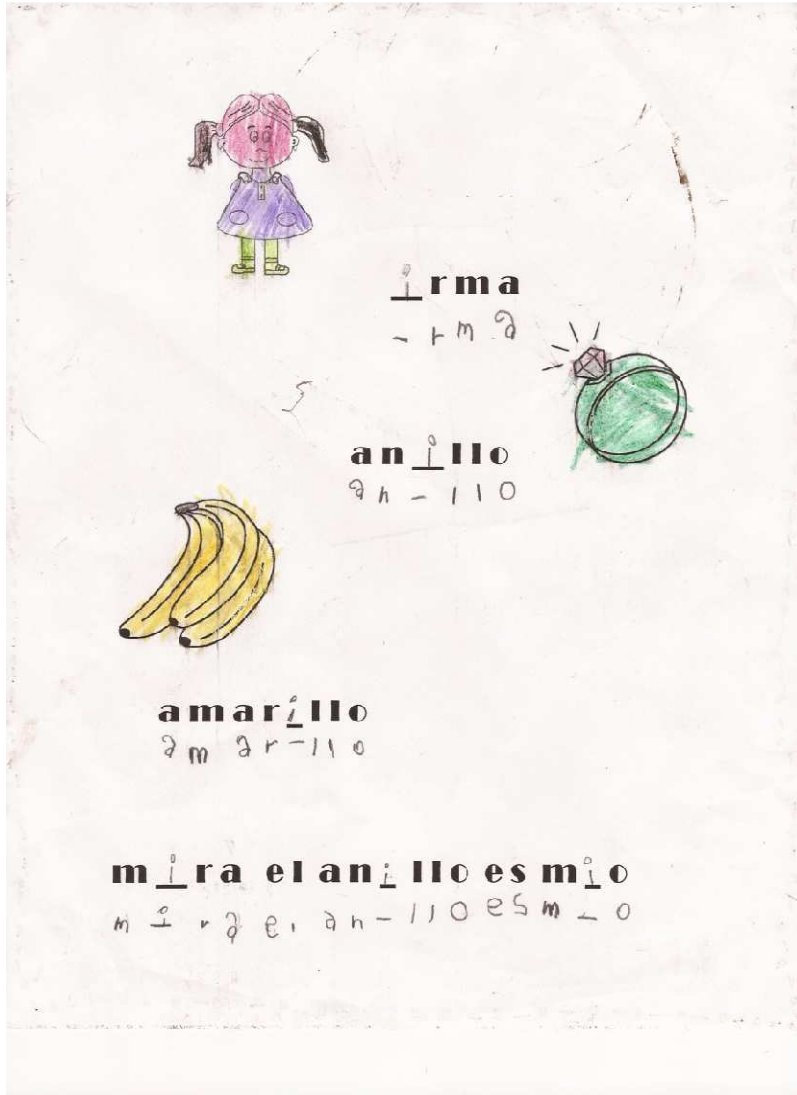 i rma
- r m a
an i llo
an - l l o
amar i llo
am ar - l l o
m i ra el an i llo es m i o
m i r a e l an - l l O e s m - o